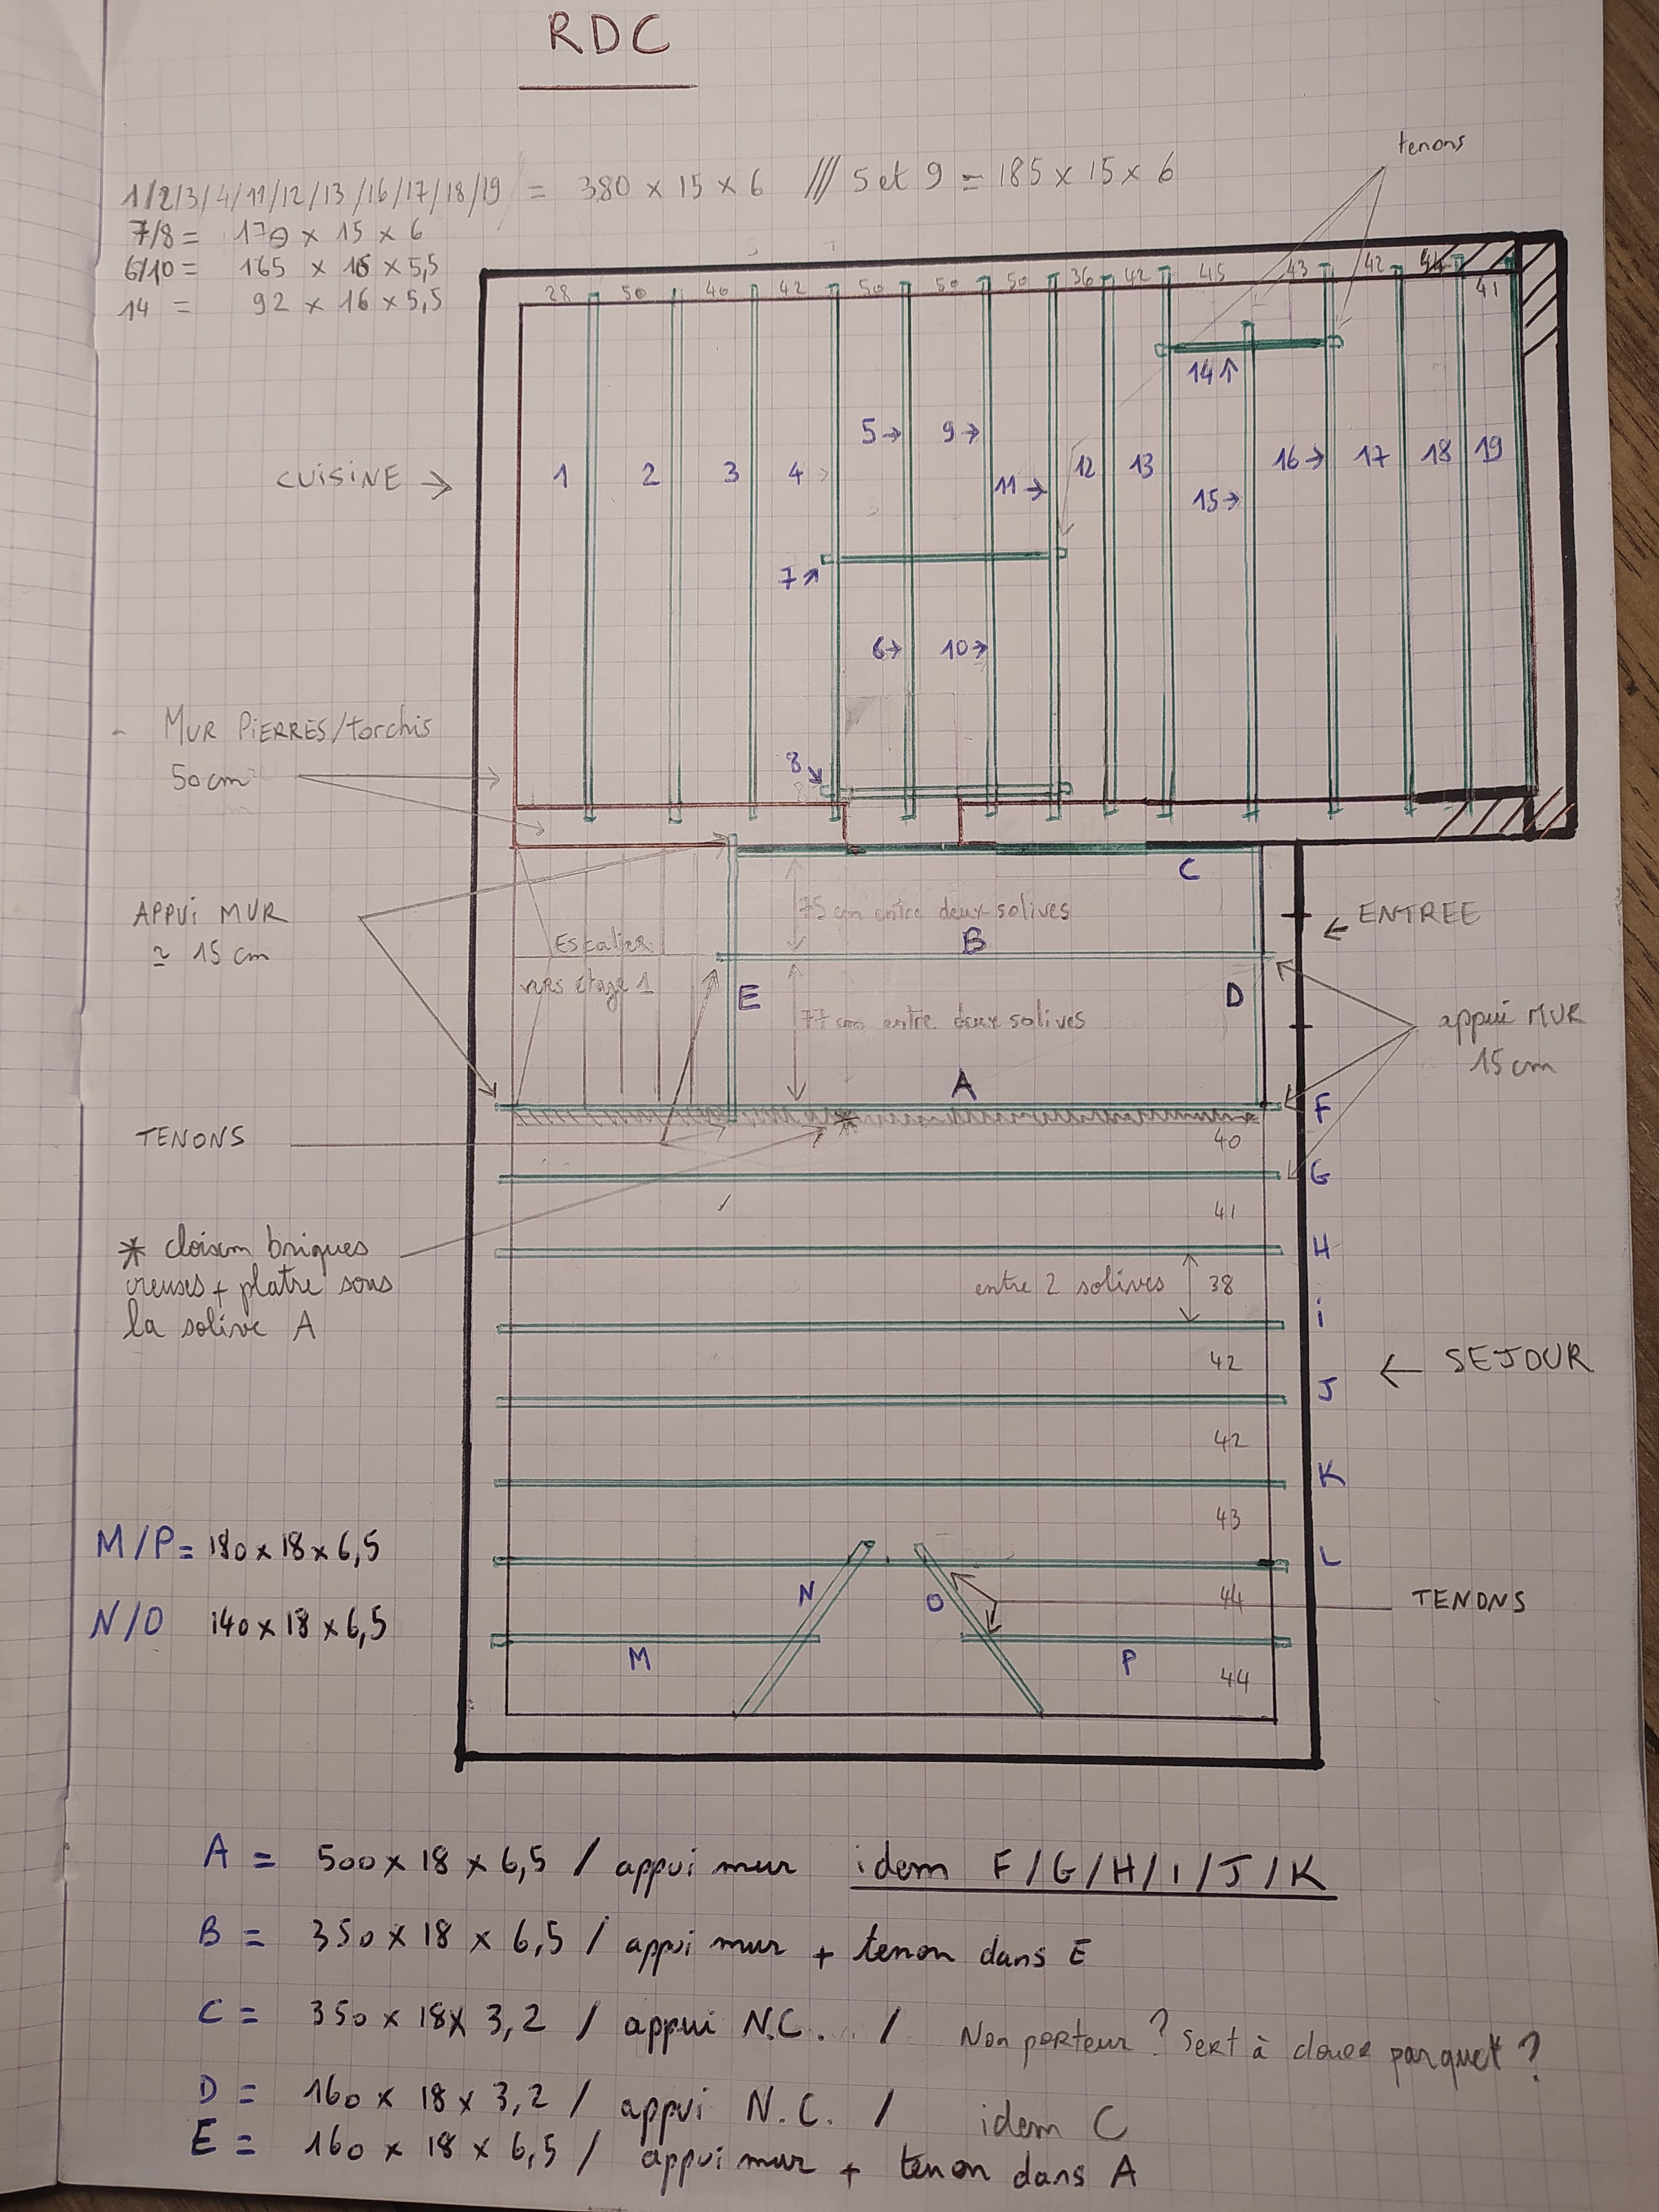 RDC
tenons
1/2/3/4/11/12/13/16/17/18/19 = 380 x 15 x 6 /// 5 et 9 = 185 x 15 x 6
7/8 = 170 x 15 x 6
6/10 = 165 x 16 x 5,5
14 = 92 x 16 x 5,5
28 50 40 42 50 50 50 36 42 45 43 42 44 41
14↑
5→ 9→
CUISINE →
1 2 3 4 11→ 12 13 15→ 16→ 17 18 19
7↗
6→ 10→
- MUR PIERRES/torchis
50cm
8↘
C
APPUI MUR
≃ 15 cm
75 cm entre deux solives
← ENTREE
B
Escalier
vers étage 1
E
D
77 cm entre deux solives
appui MUR
15cm
A
F
TENONS
*
40
G
41
* cloison briques
creuses + platre sous
la solive A
H
entre 2 solives 38
i
42
← SEJOUR
J
42
K
43
M/P = 180 x 18 x 6,5
L
N O
44
TENONS
N/O 140 x 18 x 6,5
M P
44
A = 500 x 18 x 6,5 / appui mur idem F/G/H/I/J/K
B = 350 x 18 x 6,5 / appui mur + tenon dans E
C = 350 x 18 x 3,2 / appui N.C. / Non porteur ? Sert à clouer parquet ?
D = 160 x 18 x 3,2 / appui N.C. / idem C
E = 160 x 18 x 6,5 / appui mur + tenon dans A